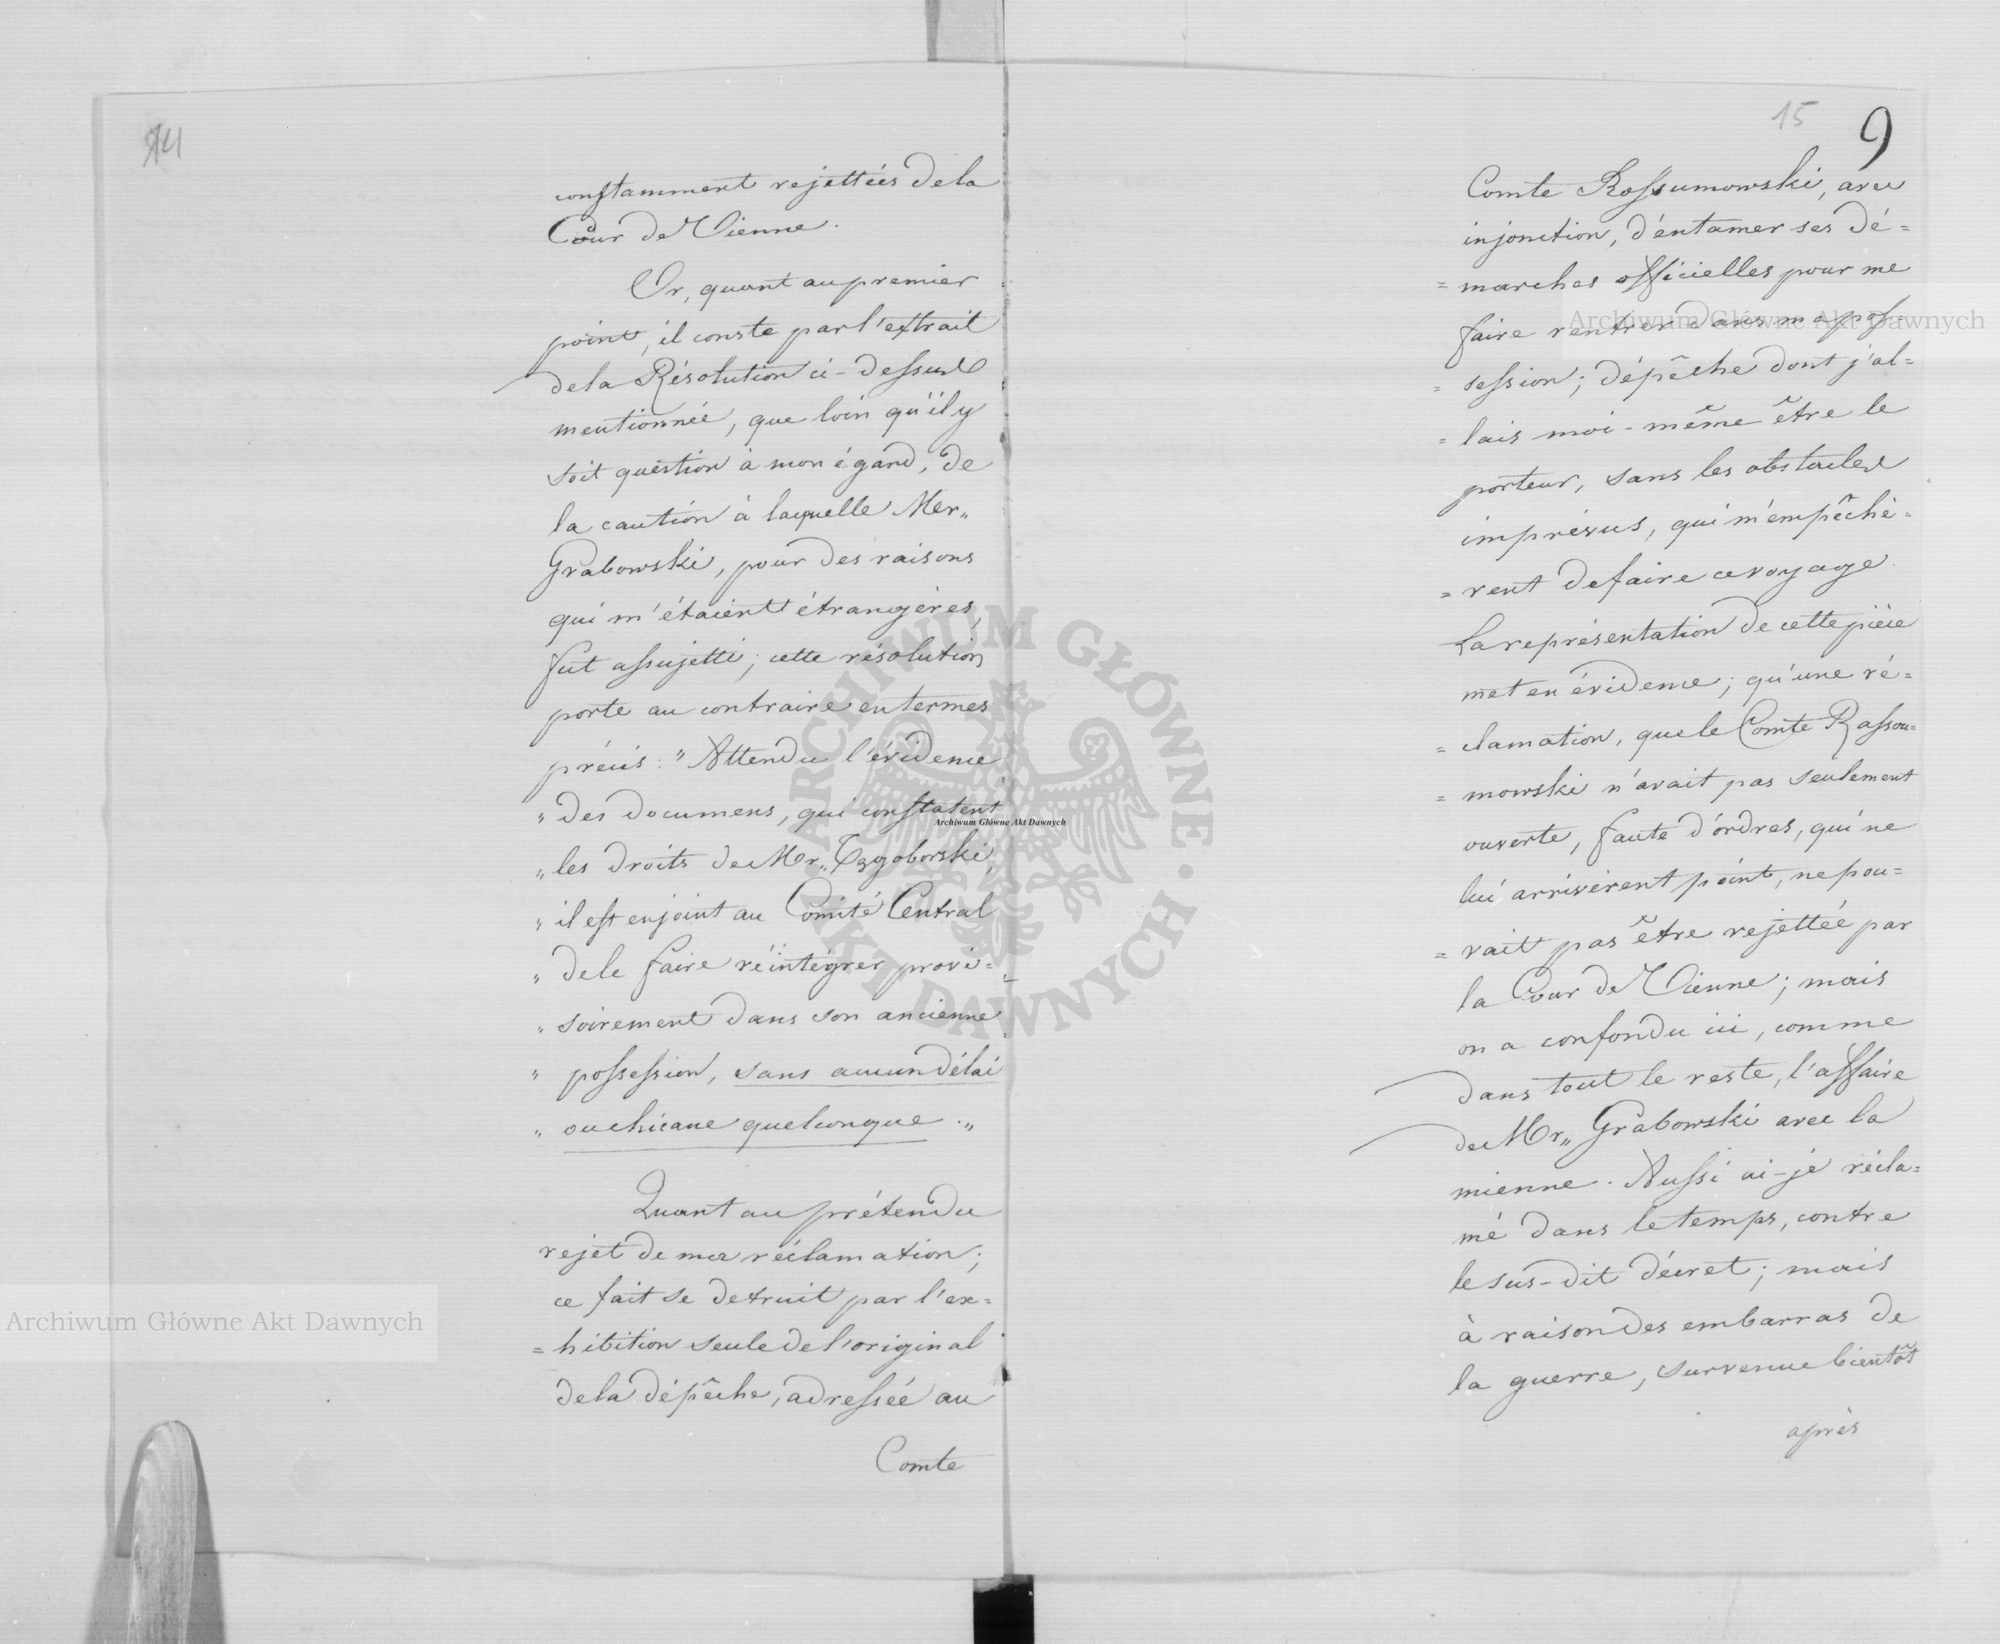 14
constamment rejettées de la
Cour de Vienne.
Or, quant au premier
point, il conste par l'extrait
de la Résolution ci-dessus
mentionnée, que loin qu'il y
soit question à mon égard, de
la caution à laquelle Mr„
Grabowski, pour des raisons
qui m'étaient étrangères,
fut assujetti; cette résolution
porte au contraire en termes
précis: „Attendu l'évidence
„ des documens, qui constatent
„ les droits de Mr„
„ il est enjoint au Comité Central
„ de le faire réintégrer provi=
„ soirement dans son ancienne
„ possession, sans aucun délai
„ ou chicane quelconque.„
Quant au prétendu
rejet de ma réclamation;
ce fait se detruit par l'ex=
= hibition seule de l'original
de la dépêche, adressée au
Comte
15
9
Comte Rossumowski, avec
injonction, d'éntamer ses dé=
= marches officielles pour me
faire rentrer dans ma pos=
= session; dépêche dont j'al=
= lais moi-même être le
porteur, sans les obstacles
imprévus, qui m'empêchè=
= rent de faire ce voyage.
La représentation de cette pièce
met en évidence; qu'une ré=
= clamation, que le Comte Rassou=
= mowski n'avait pas seulement
ouverte, faute d'ordres, qui ne
lui arrivèrent point, ne pou=
= vait pas être rejettée par
la Cour de Vienne; mais
on a confondu ici, comme
dans tout le reste, l'affaire
de Mr„ Grabowski avec la
mienne. Aussi ai-je récla=
mé dans le temps, contre
le sus-dit décret; mais
à raison des embarras de
la guerre, survenue bientôt
après
Archiwum Główne Akt Dawnych
Archiwum Główne Akt Dawnych
Archiwum Główne Akt Dawnych
ARCHIWUM GŁÓWNE · AKT DAWNYCH ·